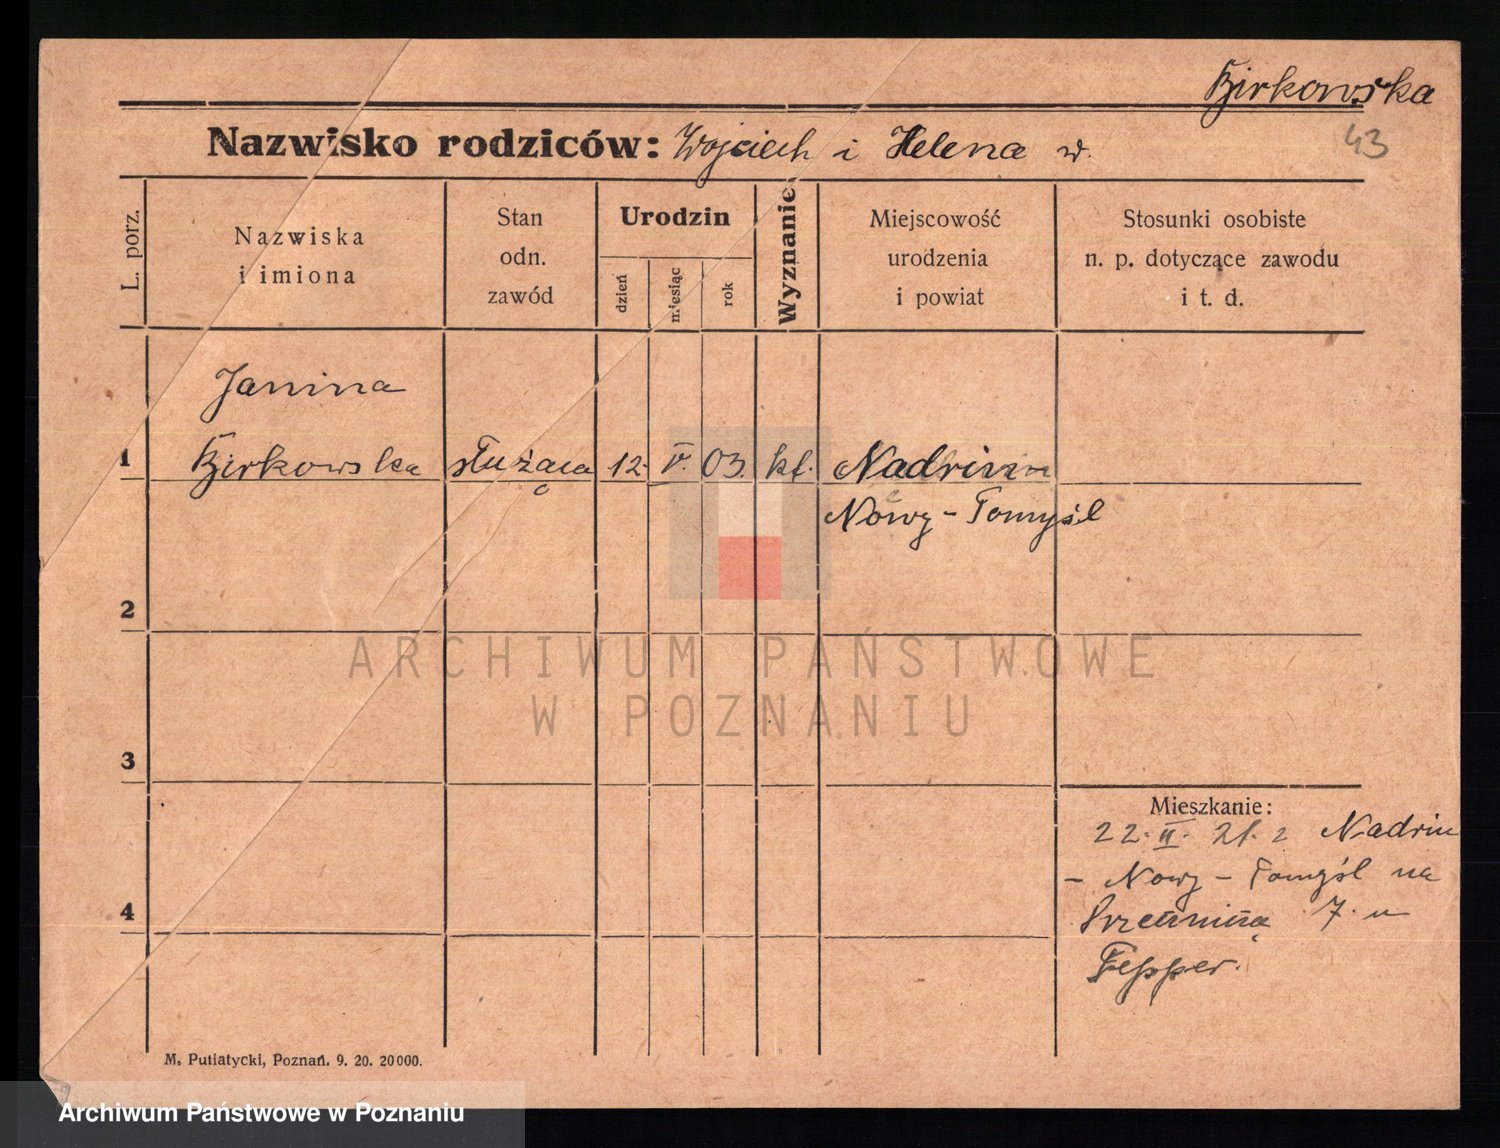 Birkowska
43
Nazwisko rodziców: Wojciech i Helena w.
L. porz.
Nazwiska
i imiona
Stan
odn.
zawód
Urodzin
dzień
miesiąc
rok
Wyznanie
Miejscowość
urodzenia
i powiat
Stosunki osobiste
n. p. dotyczące zawodu
i t. d.
Janina
1 Birkowska służąca 12. V. 03. kt.
Nowy-Tomyśl
2
3
4
Mieszkanie:
22. II. 21. z
- Nowy - Tomyśl na
7. u
M. Putiatycki, Poznań. 9. 20. 20000.
ARCHIWUM PAŃSTWOWE
W POZNANIU
Archiwum Państwowe w Poznaniu